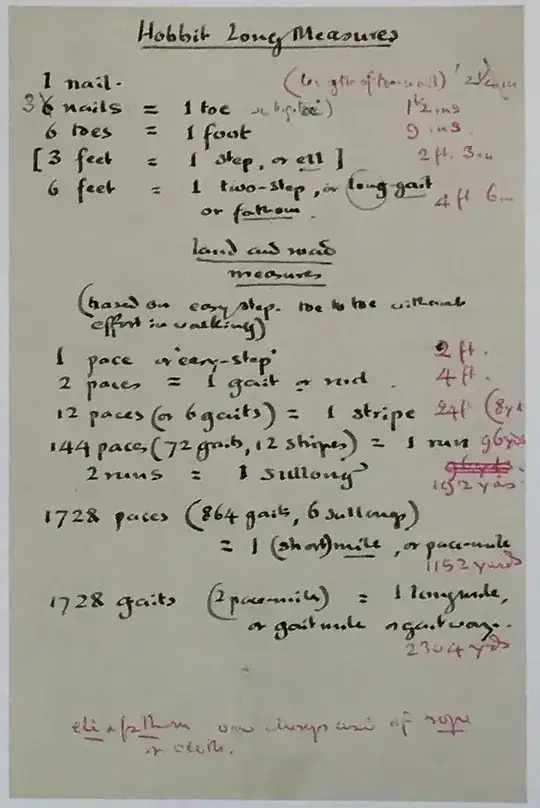 Hobbit Long Measures
1 nail. (length of toe-nail) 1/2 in
36 nails = 1 toe 1½ ins
6 toes = 1 foot 9 ins.
[3 feet = 1 step, or ell] 2 ft. 3 in
6 feet = 1 two-step, or long-gait 4 ft 6 in
or fathom.
land and road
measures
(based on easy step. toe to toe without
effort in walking)
1 pace or 'easy-step' 2 ft.
2 paces = 1 gait or rod. 4 ft.
12 paces (or 6 gaits) = 1 stripe 24 ft (8 yd
144 paces (72 gaits, 12 stripes) = 1 run 96 yds
2 runs = 1 sullong
192 yds
1728 paces (864 gaits, 6 sullongs)
= 1 (short) mile, or pace-mile
1152 yards
1728 gaits (2 pace-miles) = 1 long mile,
or gaitmile or gaitway.
2304 yds
ell & fathom are always used of rope
or cloth.